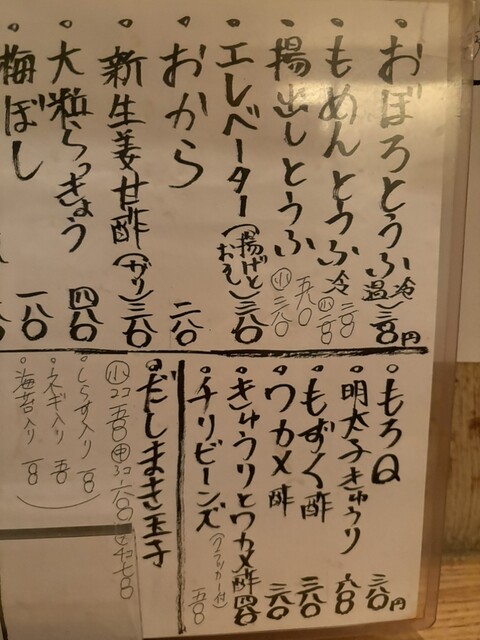 おぼろとうふ 冷 温 三八〇円
もめんとうふ 冷 三八〇 小 二八〇
揚出しとうふ 五八〇 小 三六〇
エレベーター(揚げとおろし)三八〇
おから 二八〇
新生姜甘酢(ガリ)三八〇
大粒らっきょう 四八〇
梅ぼし 一八〇
もろQ 三八〇円
明太子きゅうり 六八〇
もずく酢 三八〇
ワカメ酢 三六〇
きゅうりとワカメ酢 四八〇
チリビーンズ(クラッカー付)五八〇
だしまき玉子
小 2コ 五〇〇 中 3コ 六〇〇
しらす入り 一八〇
ネギ入り 五〇
海苔入り 一八〇